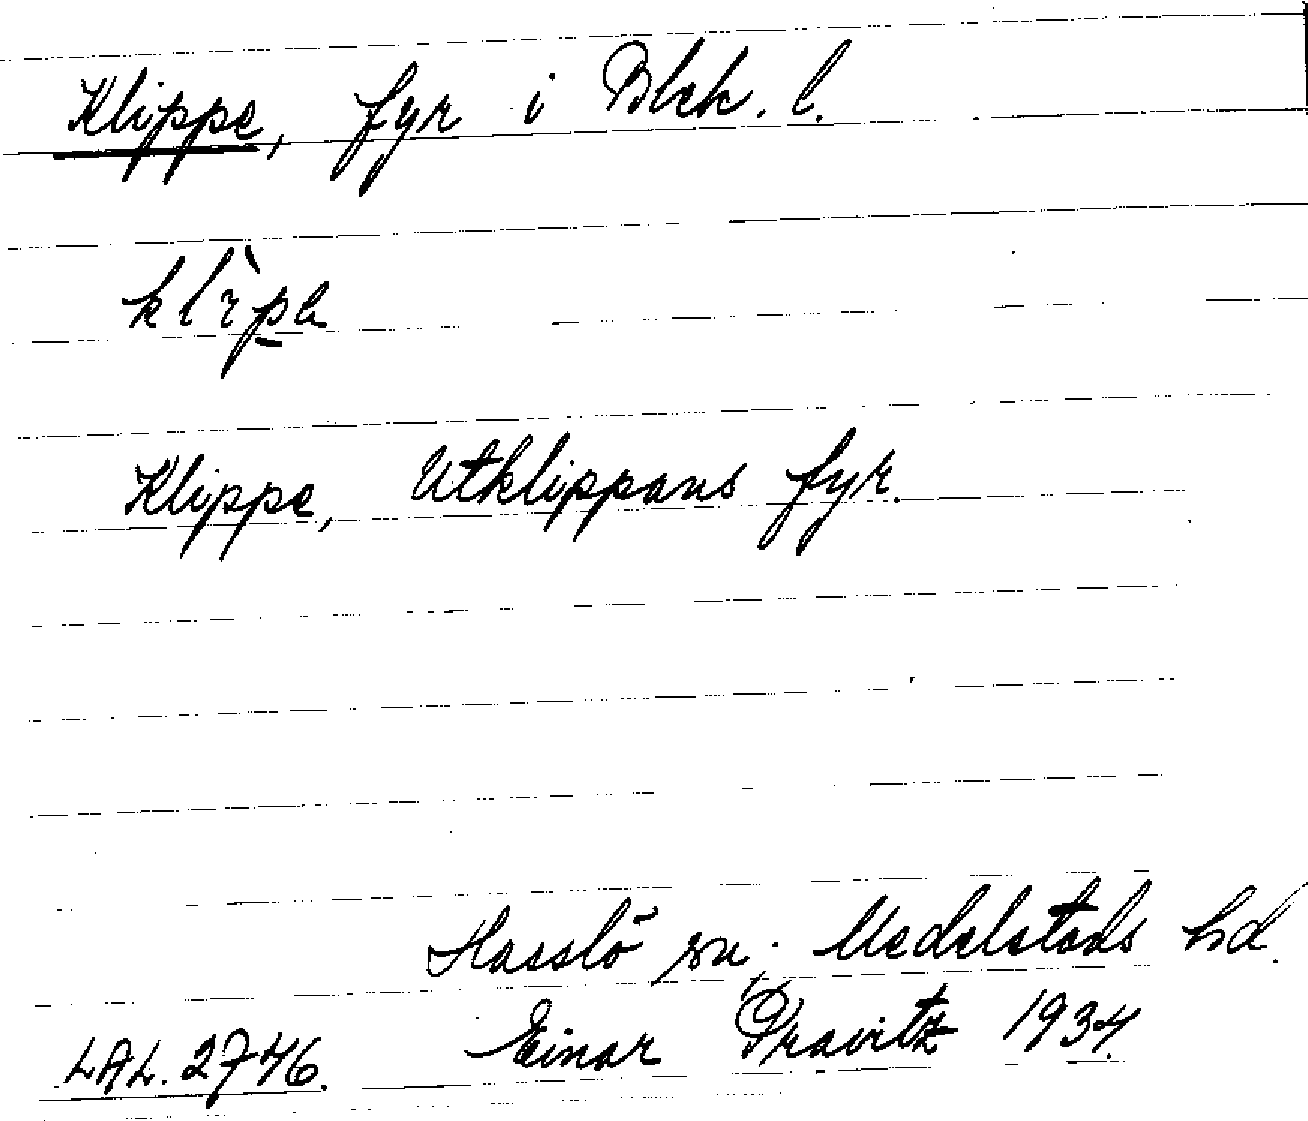 Klippe, fyr i Blek. l.
klìpa
Klippe, Utklippans fyr.
Hasslö sn; Medelstads hd.
LAL. 2746. Einar Pravitz 1934.